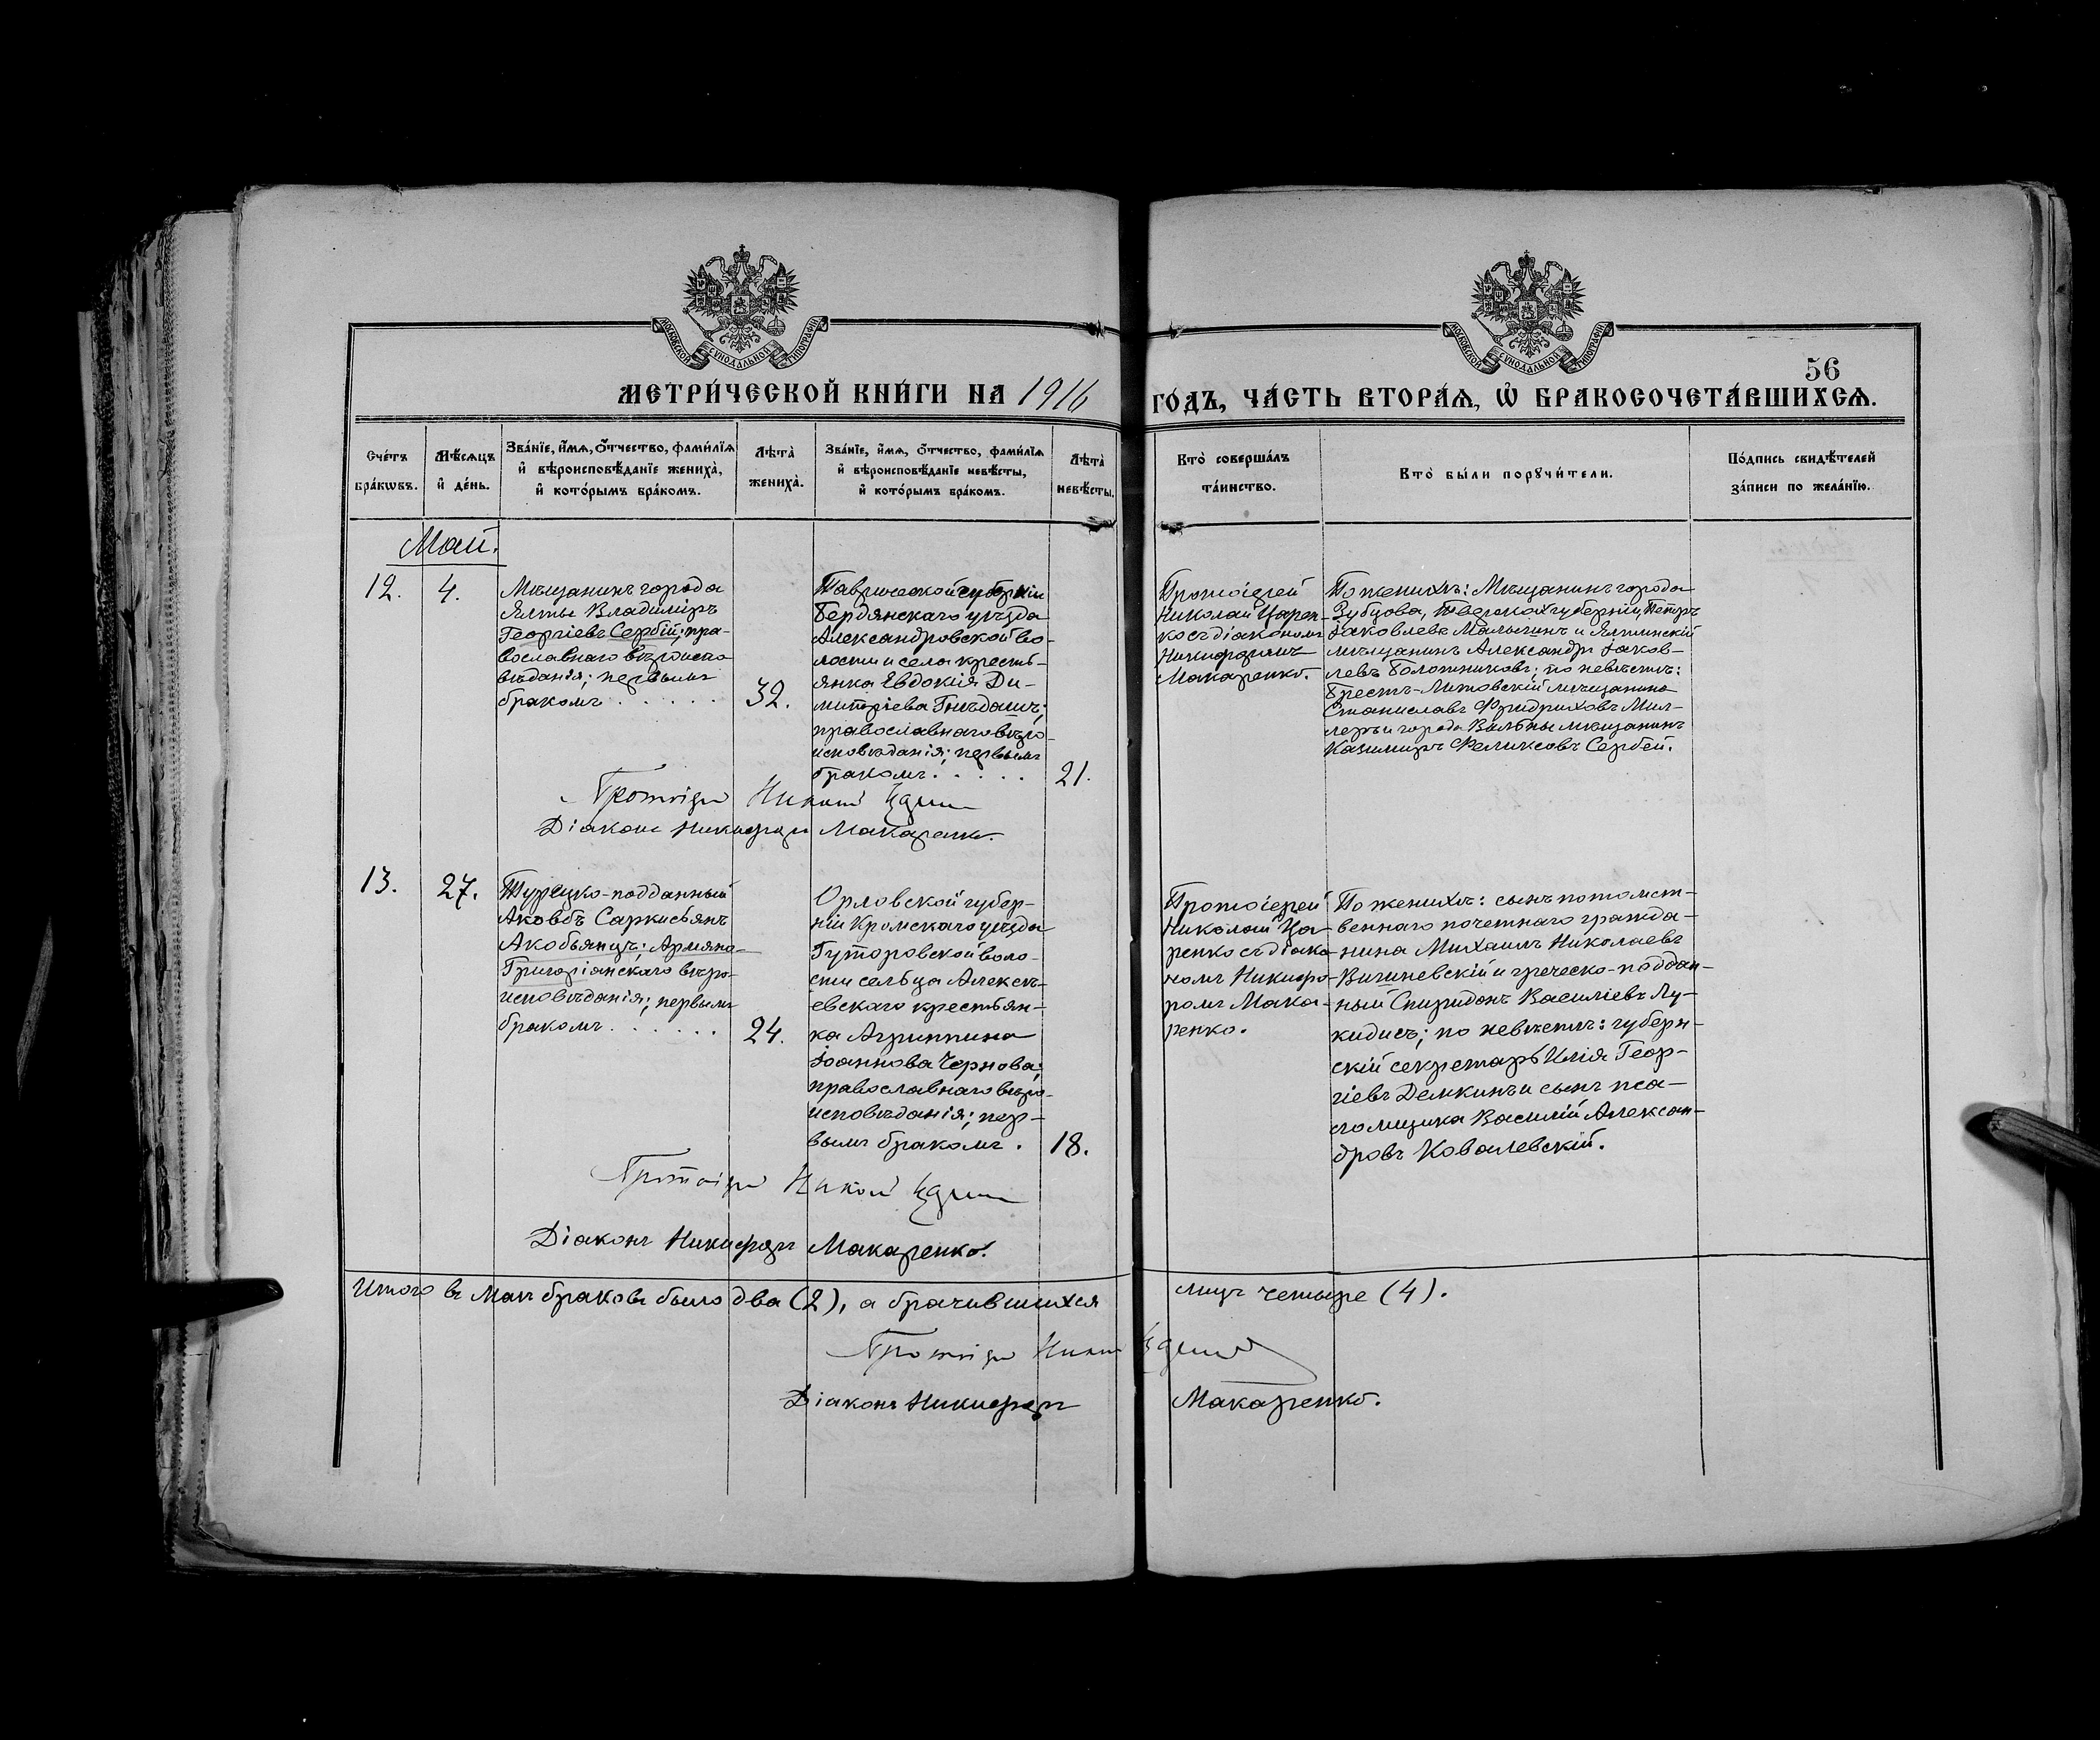 МОСКОВСКОЙ СѴНОДАЛЬНОЙ ТИПОГРАФІИ
МОСКОВСКОЙ СѴНОДАЛЬНОЙ ТИПОГРАФІИ
56
МЕТРИ́ЧЕСКОЙ КНИ́ГИ НА 1916 ГО́ДЪ, ЧА́СТЬ ВТОРА́Ѧ, Ѡ҆ БРАКОСОЧЕТА́ВШИХСѦ.
Сче́тъ бра́кѡвъ.
Мѣ́сѧцъ и҆ де́нь.
Зва́нїе, и҆́мѧ, ѻ҆́тчество, фами́лїѧ
и҆ вѣроисповѣ́данїе жениха̀,
и҆ кото́рымъ бра́комъ.
Лѣта̀ жениха̀.
Зва́нїе, и҆́мѧ, ѻ҆́тчество, фами́лїѧ
и҆ вѣроисповѣ́данїе невѣ́сты,
и҆ кото́рымъ бра́комъ.
Лѣта̀ невѣ́сты.
Кто̀ соверша́лъ
та́инство.
Кто̀ бы́ли порꙋчи́тели.
По́дпись свидѣ́телей
за́писи по жела́нїю.
Май.
12.
4.
Мѣщанинъ города
Ялты Владиміръ
Георгіевъ Сербій; пра-
вославнаго вѣроиспо-
вѣданія; первымъ
бракомъ . . . . . .
32.
Таврической губерніи
Бердянскаго уѣзда
Александровской во-
лости и села кресть-
янка Евдокія Ди-
митріева Гнѣдашъ;
православнаго вѣро-
исповѣданія; первымъ
бракомъ. . . . .
21.
Протоіерей
Николай Царен-
ко съ діакономъ
Никифоромъ
Макаренко.
По женихѣ: Мѣщанинъ города
Зубцова, Тверской губерніи, Петръ
Іаковлевъ Малыгинъ и Ялтинскій
мѣщанинъ Александръ Іаков-
левъ Болотниковъ; по невѣстѣ:
Брестъ-Литовскій мѣщанинъ
Станиславъ Фридриховъ Мил-
леръ и города Вильны мѣщанинъ
Казимиръ Феликсовъ Сербей.
Протоіерей Николай Царенко
Діаконъ Никифоръ Макаренко.
13.
27.
Турецко-подданный
Аковбъ Саркисьянъ
Акобьянцъ; Армяно-
Григоріанскаго вѣро-
исповѣданія; первымъ
бракомъ . . . . . .
24.
Орловской губер-
ніи Кромскаго уѣзда
Гуторовской воло-
сти сельца Алексѣ-
евскаго крестьян-
ка Агриппина
Іоаннова Чернова;
православнаго вѣро-
исповѣданія; пер-
вымъ бракомъ .
18.
Протоіерей
Николай Ца-
ренко съ діако-
номъ Никифо-
ромъ Мака-
ренко.
По женихѣ: сынъ потомст-
веннаго почетнаго гражда-
нина Михаилъ Николаевъ
Вишневскій и греческо-поддан-
ный Спиридонъ Василіевъ Лу-
кидисъ; по невѣстѣ: губерн-
скій секретарь Илія Геор-
гіевъ Демкинъ и сынъ пса-
ломщика Василій Алексан-
дровъ Ковалевскій.
Протоіерей Николай Царенко
Діаконъ Никифоръ Макаренко.
Итого въ Маѣ браковъ было два (2), а брачившихся лицъ четыре (4).
Протоіерей Николай Царенко
Діаконъ Никифоръ Макаренко.